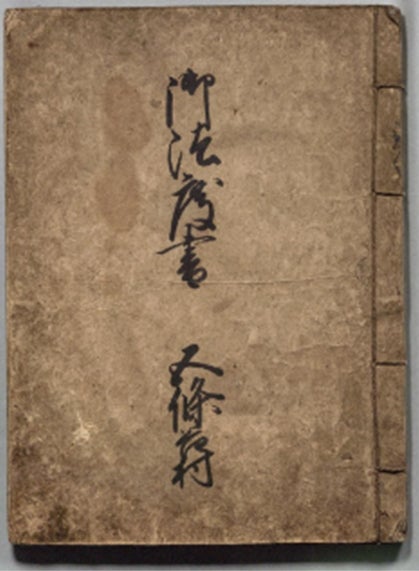 御法度書 五條村